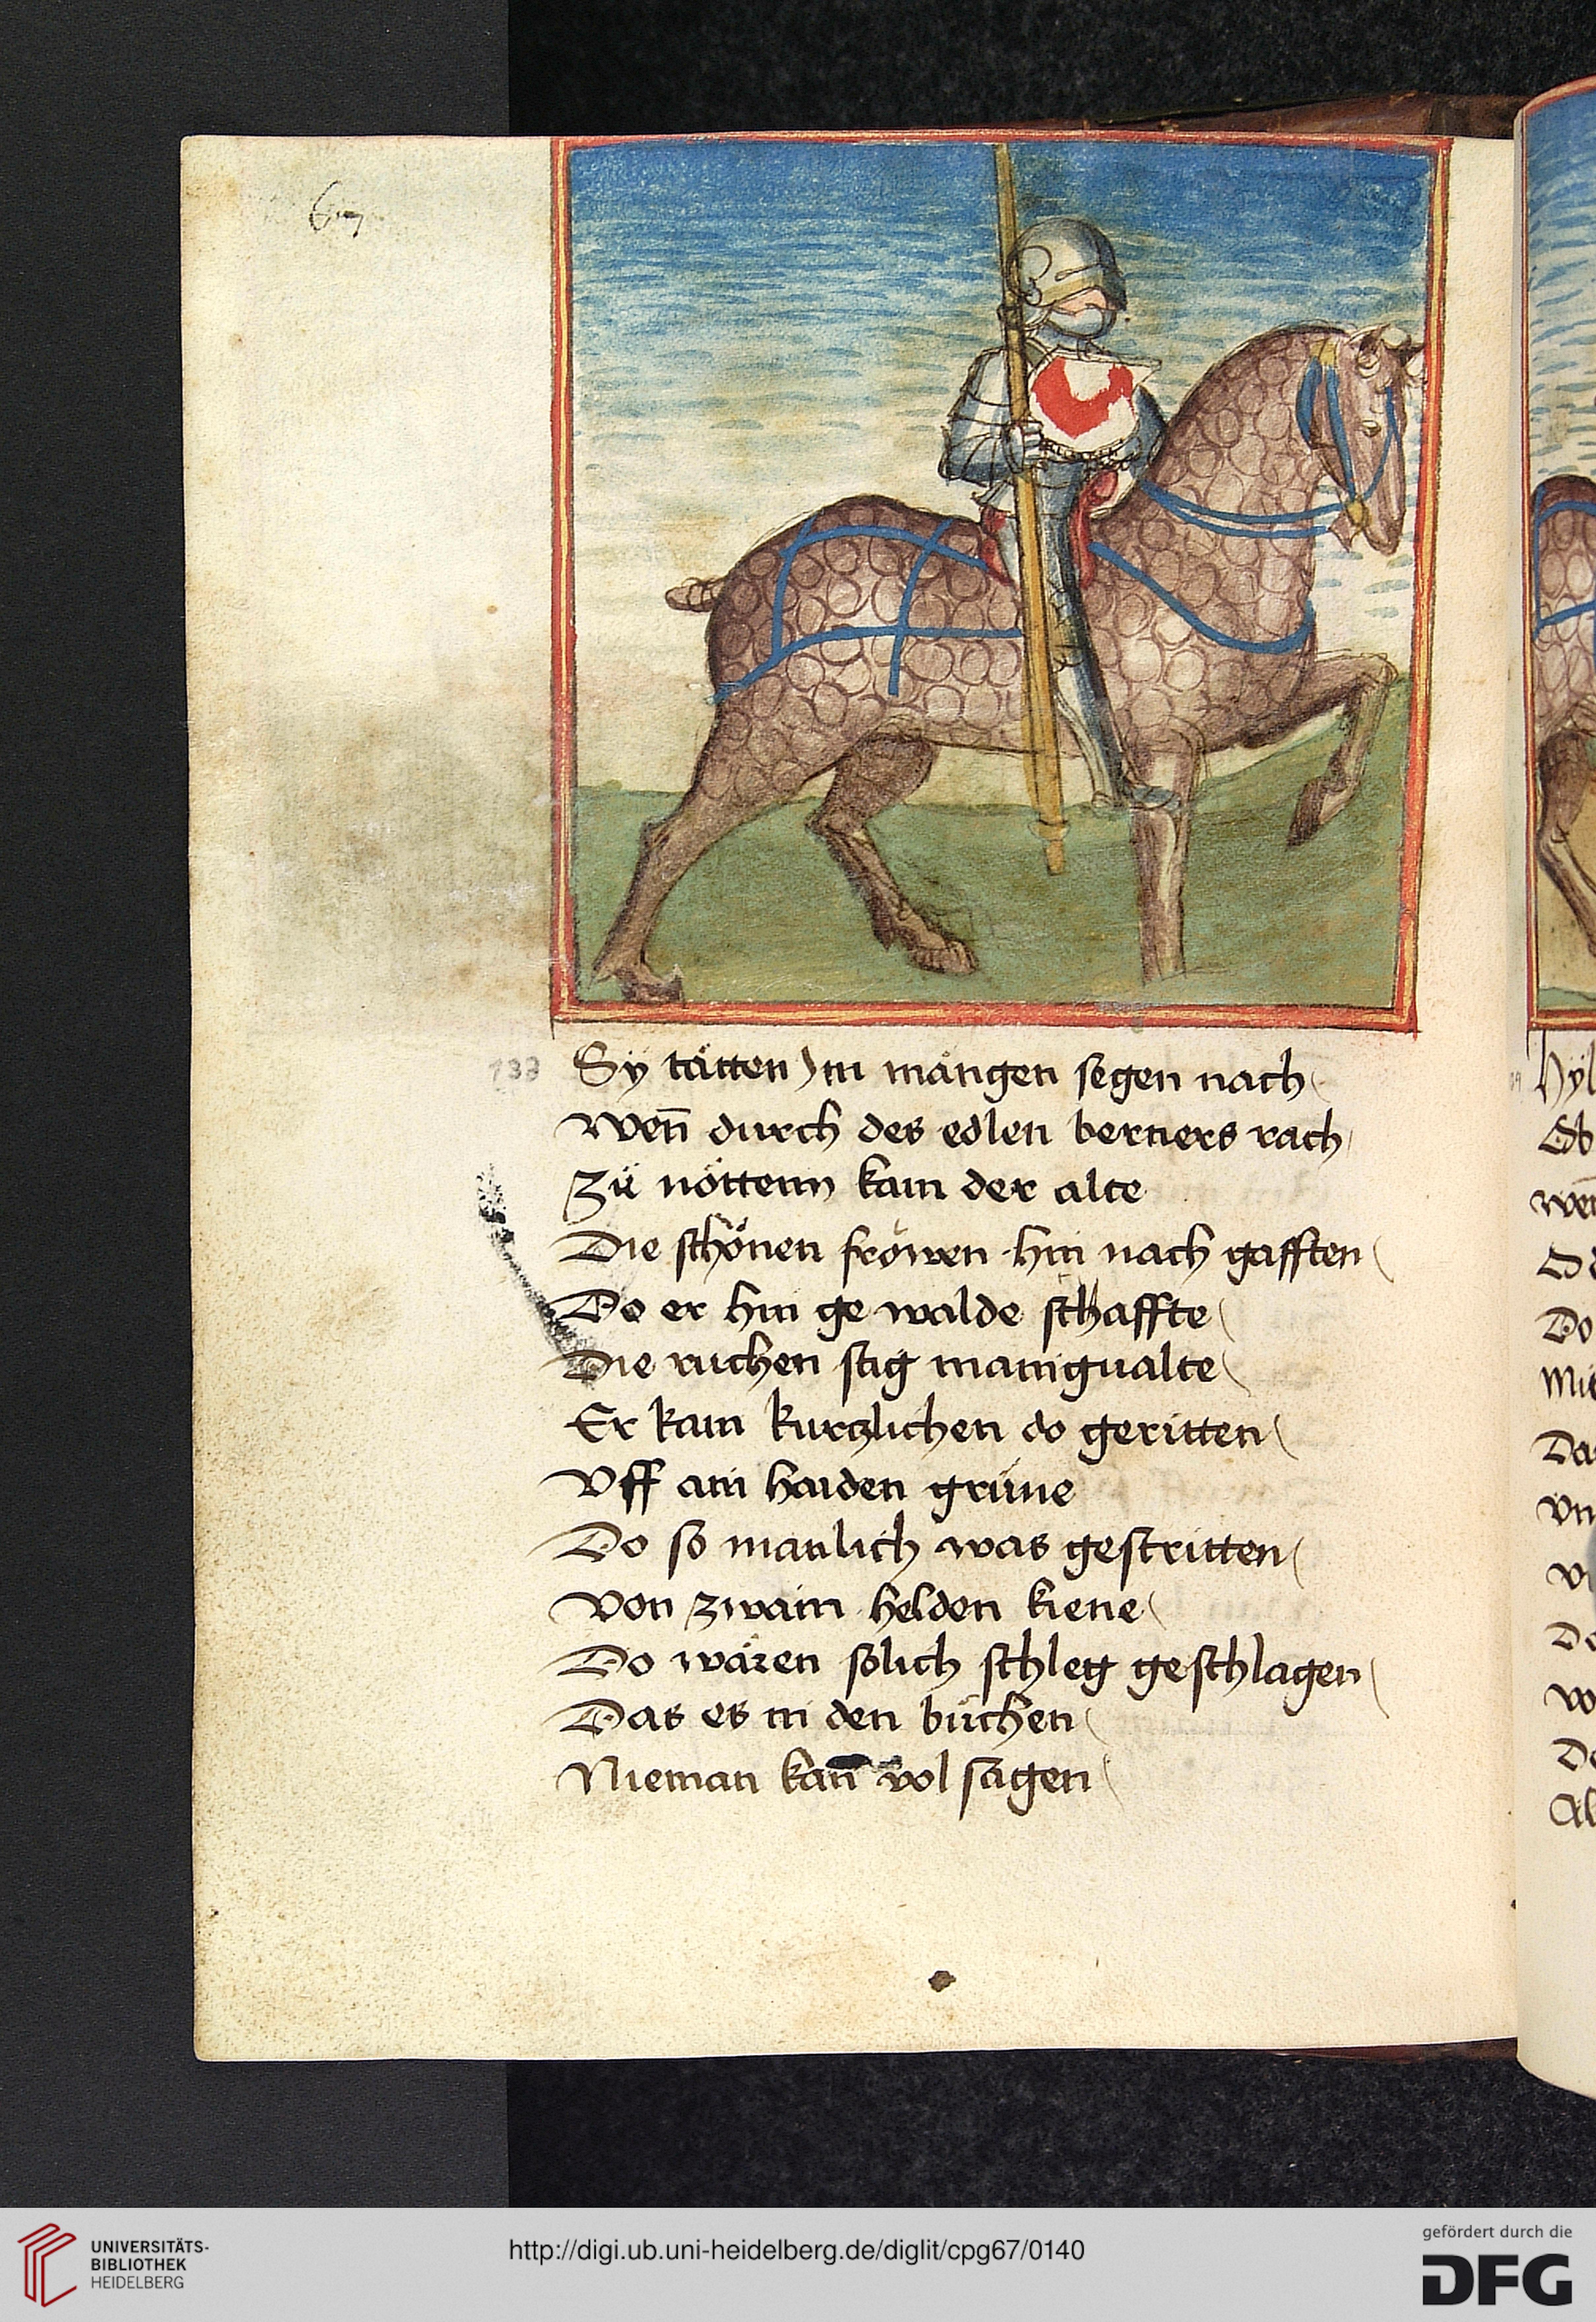 133
Sy tätten Im mängen segen nach
Wen̄ durch des edlen berners rach
Zü nöttenn kam der alte
Die schönen fröwen hin nach gafften
Do er hin ge walde schaffte
Die ruchen stig manigualte
Er kam kurczlichen do geritten
Vff ain haiden grüne
Do so manlich was gestritten
Von zwain helden kiene
Do wären solich schleg geschlagen
Das es in den büchen
Nieman kan̄ vol sagen
Hyl
Ob
Do
Mit
Da
Vn
Do
UNIVERSITÄTS-
BIBLIOTHEK
HEIDELBERG
http://digi.ub.uni-heidelberg.de/diglit/cpg67/0140
gefördert durch die
DFG